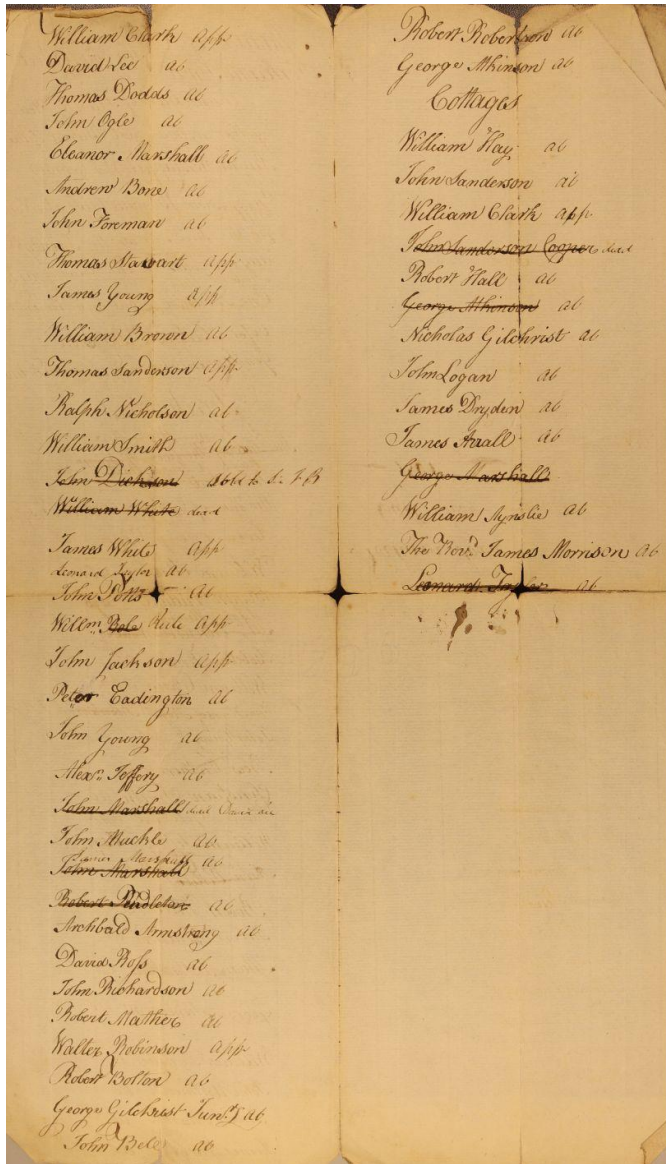 William Clark app
David Lee ab
Thomas Dodds ab
John Ogle ab
Eleanor Marshall ab
Andrew Bone ab
John Foreman ab
Thomas Stawart app
James Young app
William Brown ab
Thomas Sanderson app
Ralph Nicholson ab
William Smith ab
John Dickson to
William White dead
James White app
Leonard Taylor ab
John Potts ab
Willm. Bole Rule app
John Jackson app
Peter Eadington ab
John Young ab
Alexr. Joffery ab
John Marshall dead
John Mackle ab
James Marshall ab
John Marshall
Robert Pendleton ab
Archbald Armstrong ab
David Ross ab
John Richardson ab
Robert Mather ab
Walter Robinson app
Robert Bolton ab
George Gilchrist Junr. ab
John Bele ab
Robert Robertson ab
George Atkinson ab
Cottages
William Hay ab
John Sanderson ab
William Clark app
John Sanderson Cooper dead
Robert Hall ab
George Atkinson ab
Nicholas Gilchrist ab
John Logan ab
James Dryden ab
James ab
George Marshall
William Aynslie ab
The Revd. James Morrison ab
Leonard Taylor ab